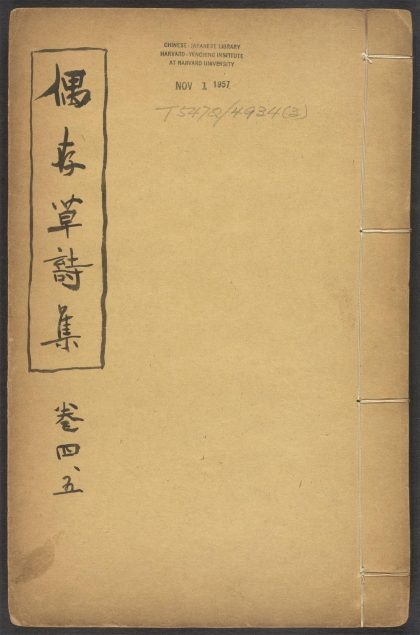 偶存草詩集
卷四、五
CHINESE-JAPANESE LIBRARY
HARVARD-YENCHING INSTITUTE
AT HARVARD UNIVERSITY
NOV 1 1957
T5472/4934(3)